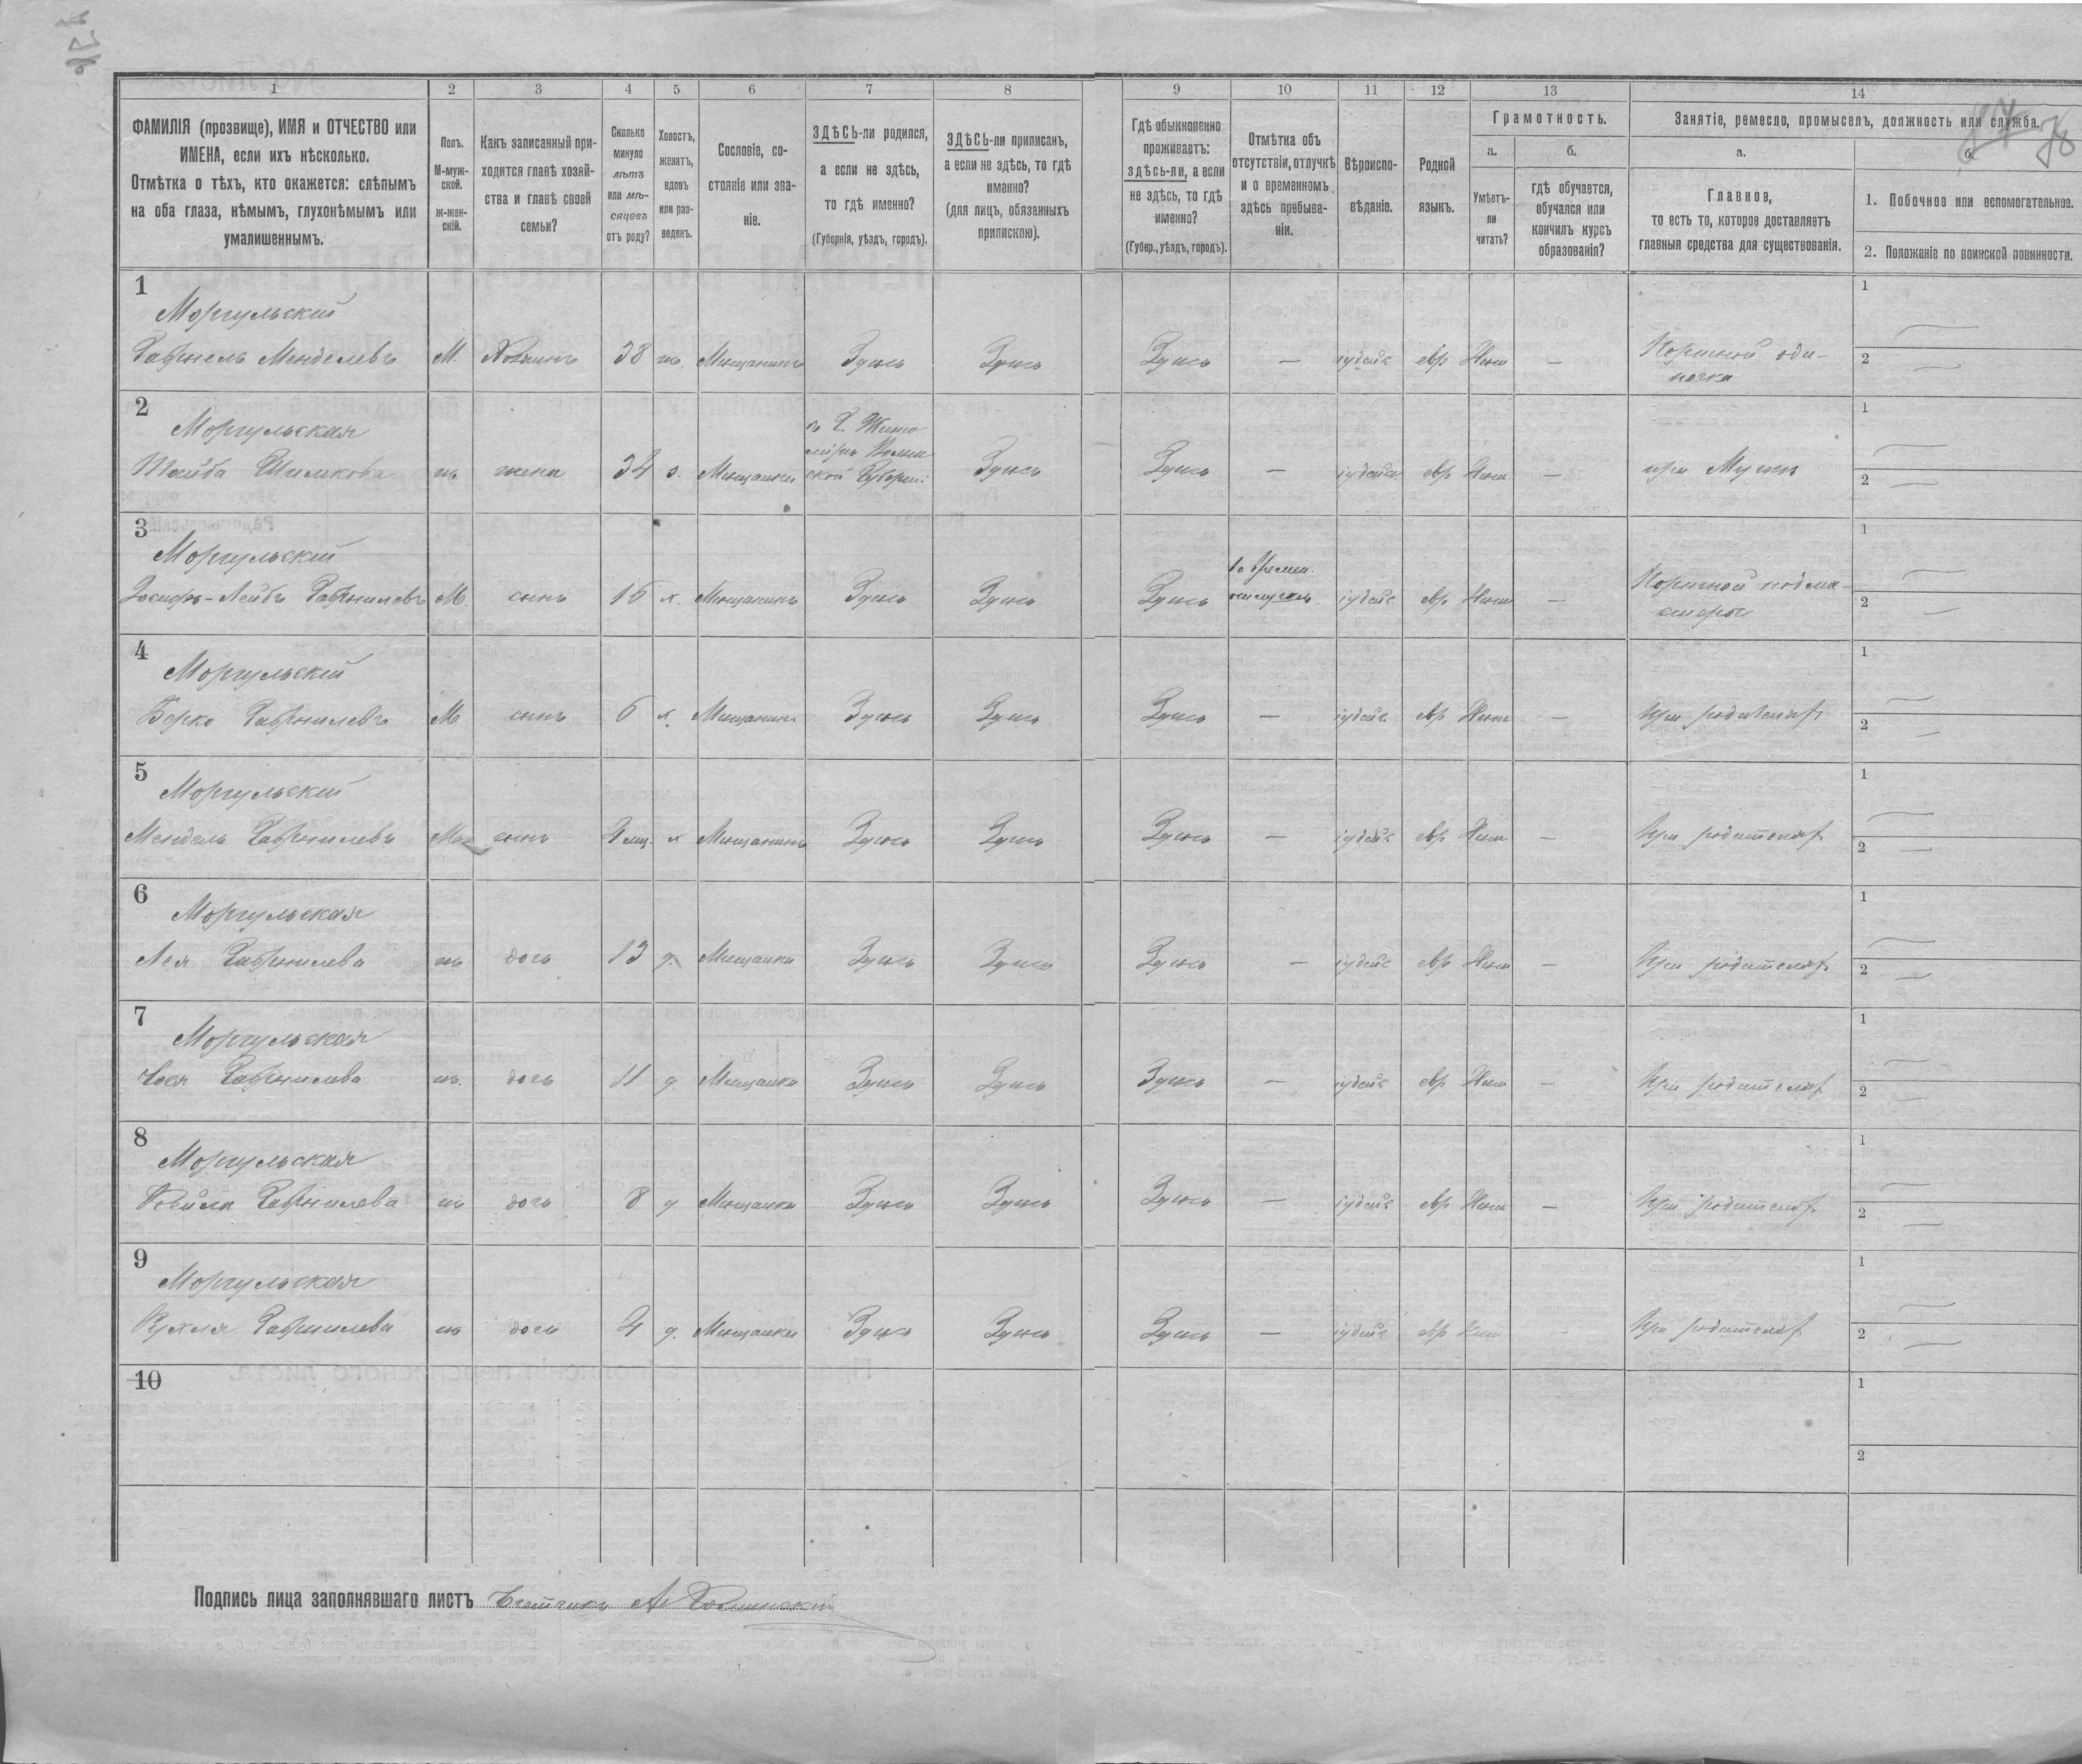 1 2 3 4 5 6 7 8 9 10 11 12 13 14
ФАМИЛІЯ (прозвище), ИМЯ и ОТЧЕСТВО или
ИМЕНА, если ихъ нѣсколько.
Отмѣтка о тѣхъ, кто окажется: слѣпымъ
на оба глаза, нѣмымъ, глухонѣмымъ или
умалишеннымъ.
Полъ.
М-муж-
ской.
ж-жен-
скій.
Какъ записанный при-
ходится главѣ хозяй-
ства и главѣ своей
семьи?
Сколько
минуло
лѣтъ
или мѣ-
сяцевъ
отъ роду?
Холостъ,
женатъ,
вдовъ
или раз-
веденъ.
Сословіе, со-
стояніе или зва-
ніе.
ЗДѢСЬ-ли родился,
а если не здѣсь,
то гдѣ именно?
(Губернія, уѣздъ, городъ).
ЗДѢСЬ-ли приписанъ,
а если не здѣсь, то гдѣ
именно?
(для лицъ, обязанныхъ
припискою).
Гдѣ обыкновенно
проживаетъ:
здѣсь-ли, а если
не здѣсь, то гдѣ
именно?
(Губер., уѣздъ, городъ).
Отмѣтка объ
отсутствіи, отлучкѣ
и о временномъ
здѣсь пребыва-
ніи.
Вѣроиспо-
вѣданіе.
Родной
языкъ.
Грамотность.
а.
Умѣетъ-
ли
читать?
б.
гдѣ обучается,
обучался или
кончилъ курсъ
образованія?
Занятіе, ремесло, промыселъ, должность или служба.
а.
Главное,
то есть то, которое доставляетъ
главныя средства для существованія.
б.
1. Побочное или вспомогательное.
2. Положеніе по воинской повинности.
1
Моргульский
Гавриель Менделевъ М. Хозяинъ 38 ж. Мещанинъ Здесь Здесь Здесь — іудейс евр Нет — Портной оди-
ночка
1
2
2
Моргульская
Шимкова ж жена 34 з. Мещанка Здесь Здесь — іудейс евр Нет — при Муже
1
2
3
Моргульский
Іосифъ-Лейбъ Гавриилевъ М. сынъ 16 х. Мещанинъ Здесь Здесь Здесь іудейс евр Нет — Портной подма-
стерье
1
2
4
Моргульский
Берко Гавриилевъ М сынъ 6 х. Мещанинъ Здесь Здесь Здесь — іудейс евр Нет — При родителях
1
2
5
Моргульский
Мендель Гавриилевъ М сынъ мц. х Мещанинъ Здесь Здесь Здесь — іудейс евр Нет — При родителях
1
2
6
Моргульская
Лея Гавриилева ж дочь 13 д. Мещанка Здесь Здесь Здесь — іудейс евр Нет — При родителях
1
2
7
Моргульская
Гавриилева ж. дочь 11 д. Мещанка Здесь Здесь Здесь — іудейс евр Нет — При родителях
1
2
8
Моргульская
Гавриилева ж дочь 8 д Мещанка Здесь Здесь Здесь — іудейс евр Нет — При родителях
1
2
9
Моргульская
Рухля Гавриилева ж дочь 4 д. Мещанка Здесь Здесь Здесь — іудейс евр Нет — При родителях
1
2
10
1
2
Подпись лица заполнявшаго листъ Счетчикъ